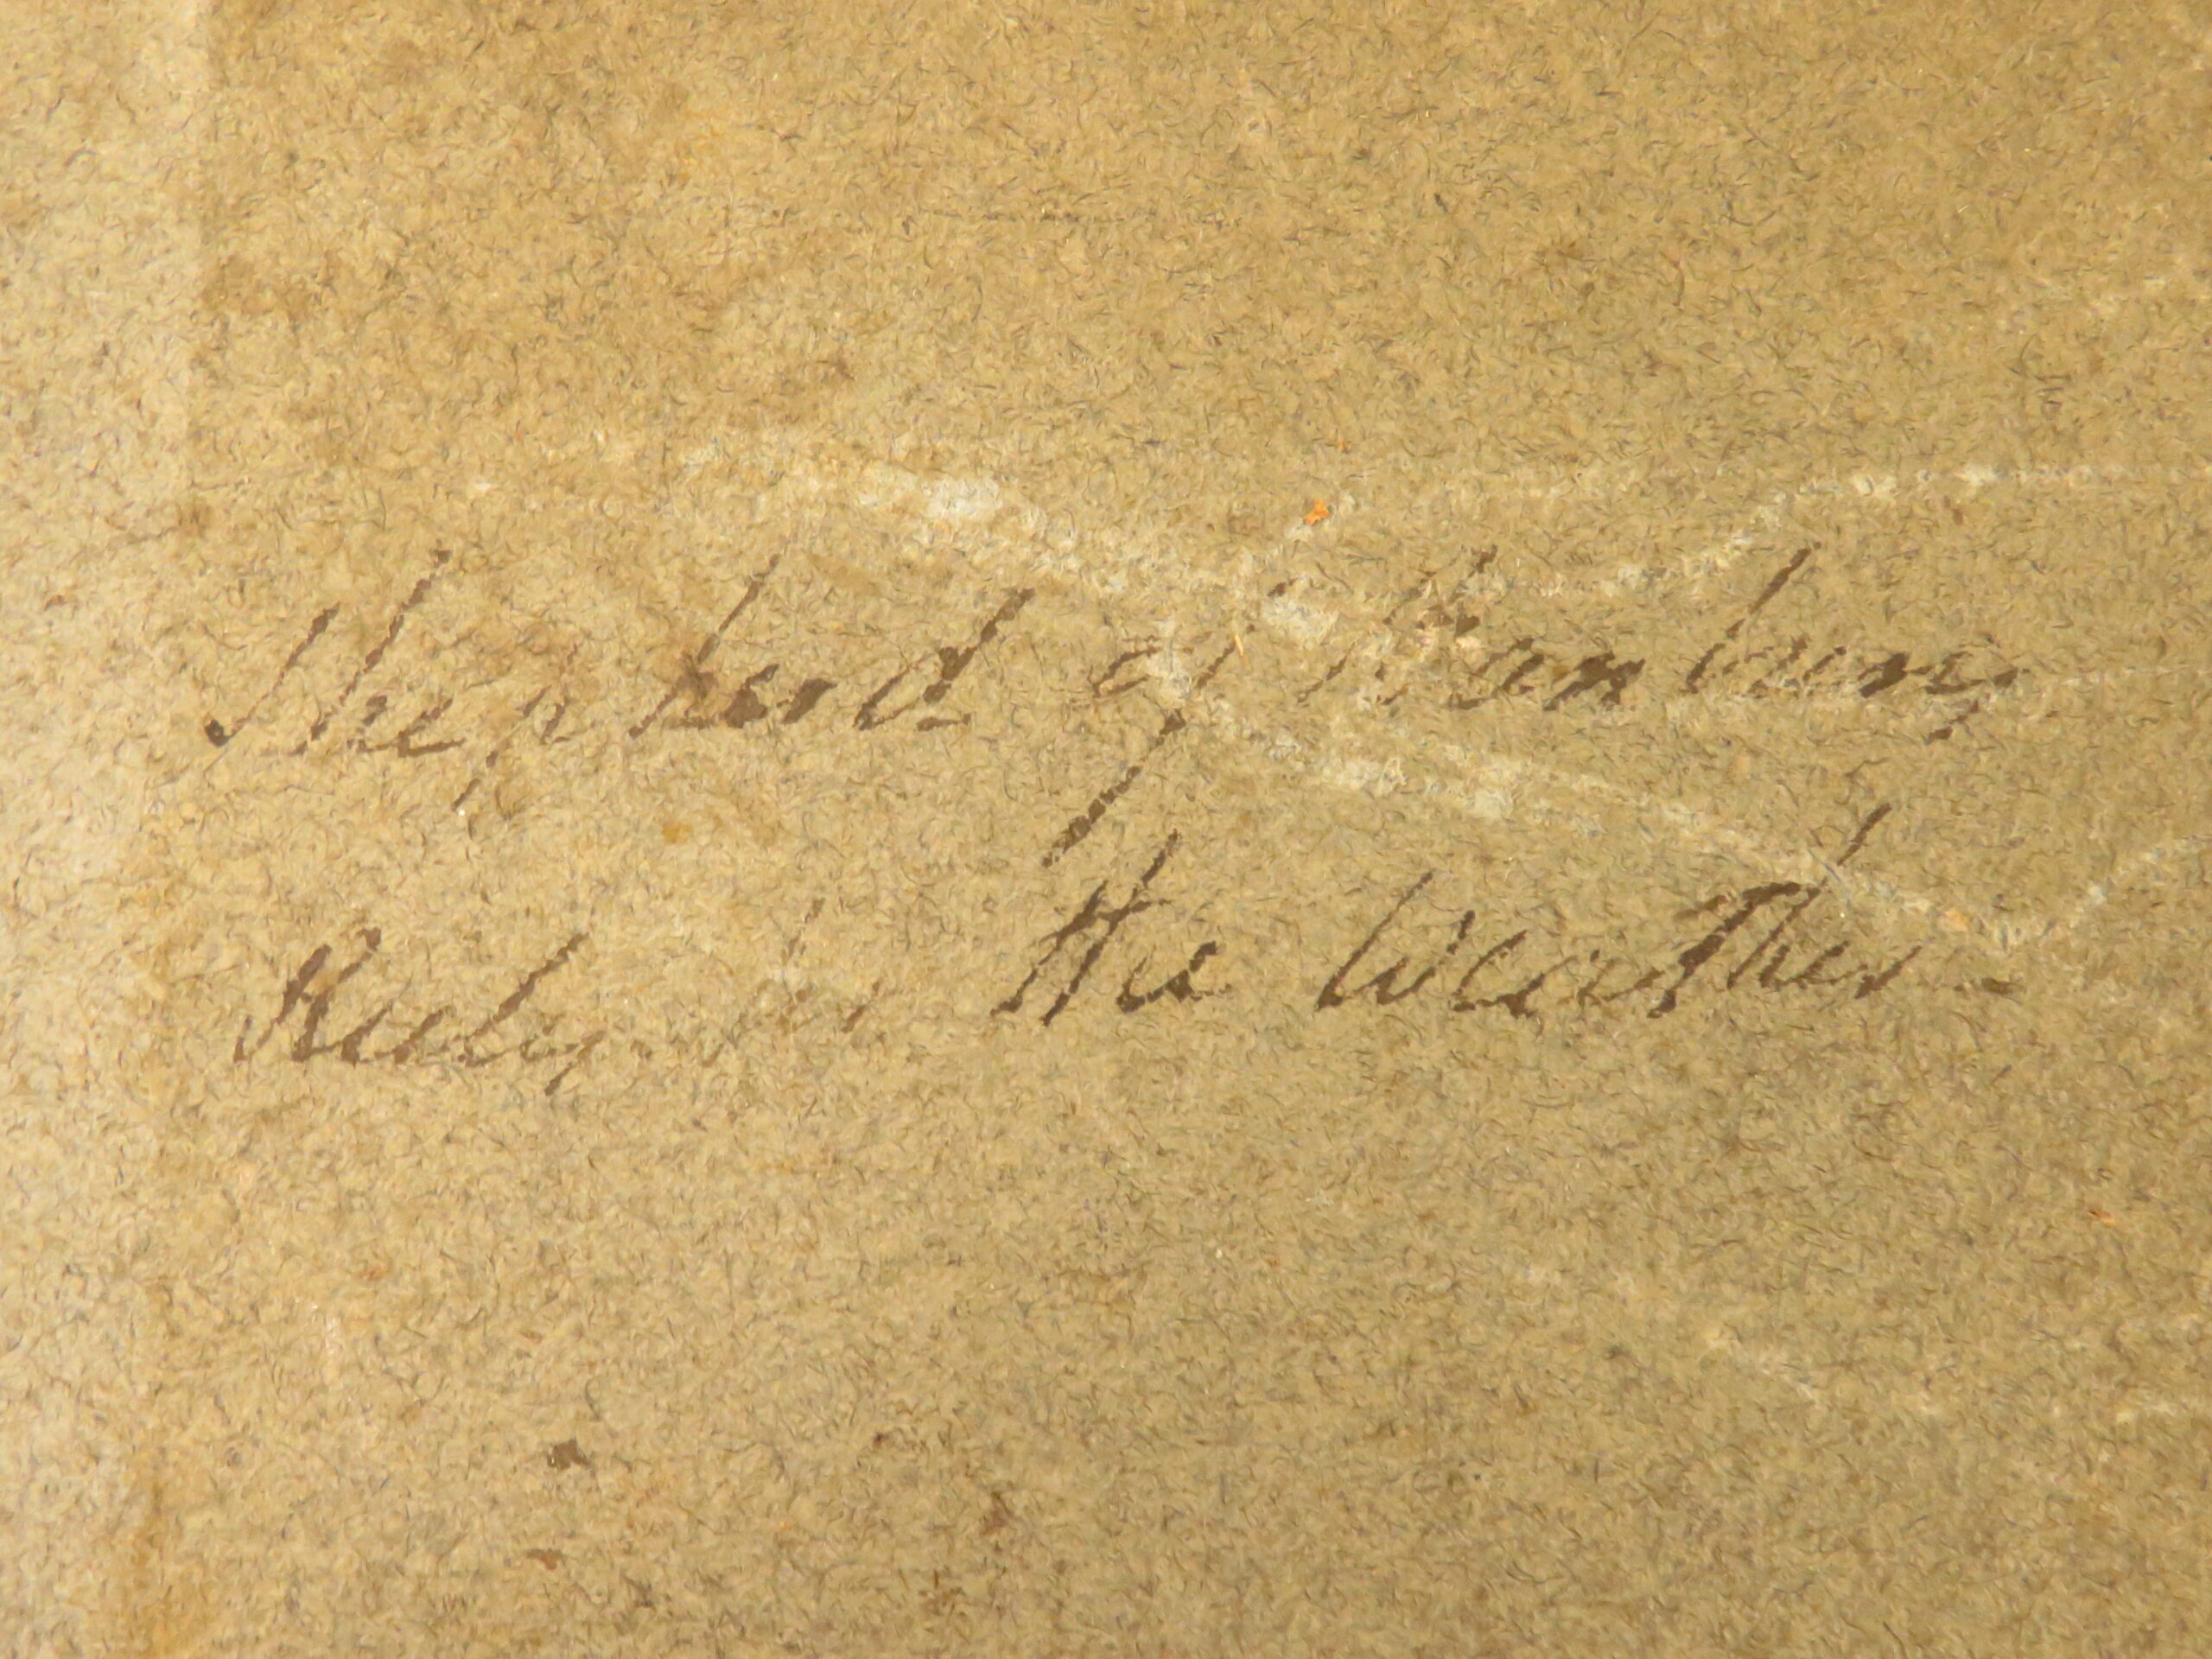 Shepherd of Banbury
Rules for the Weather